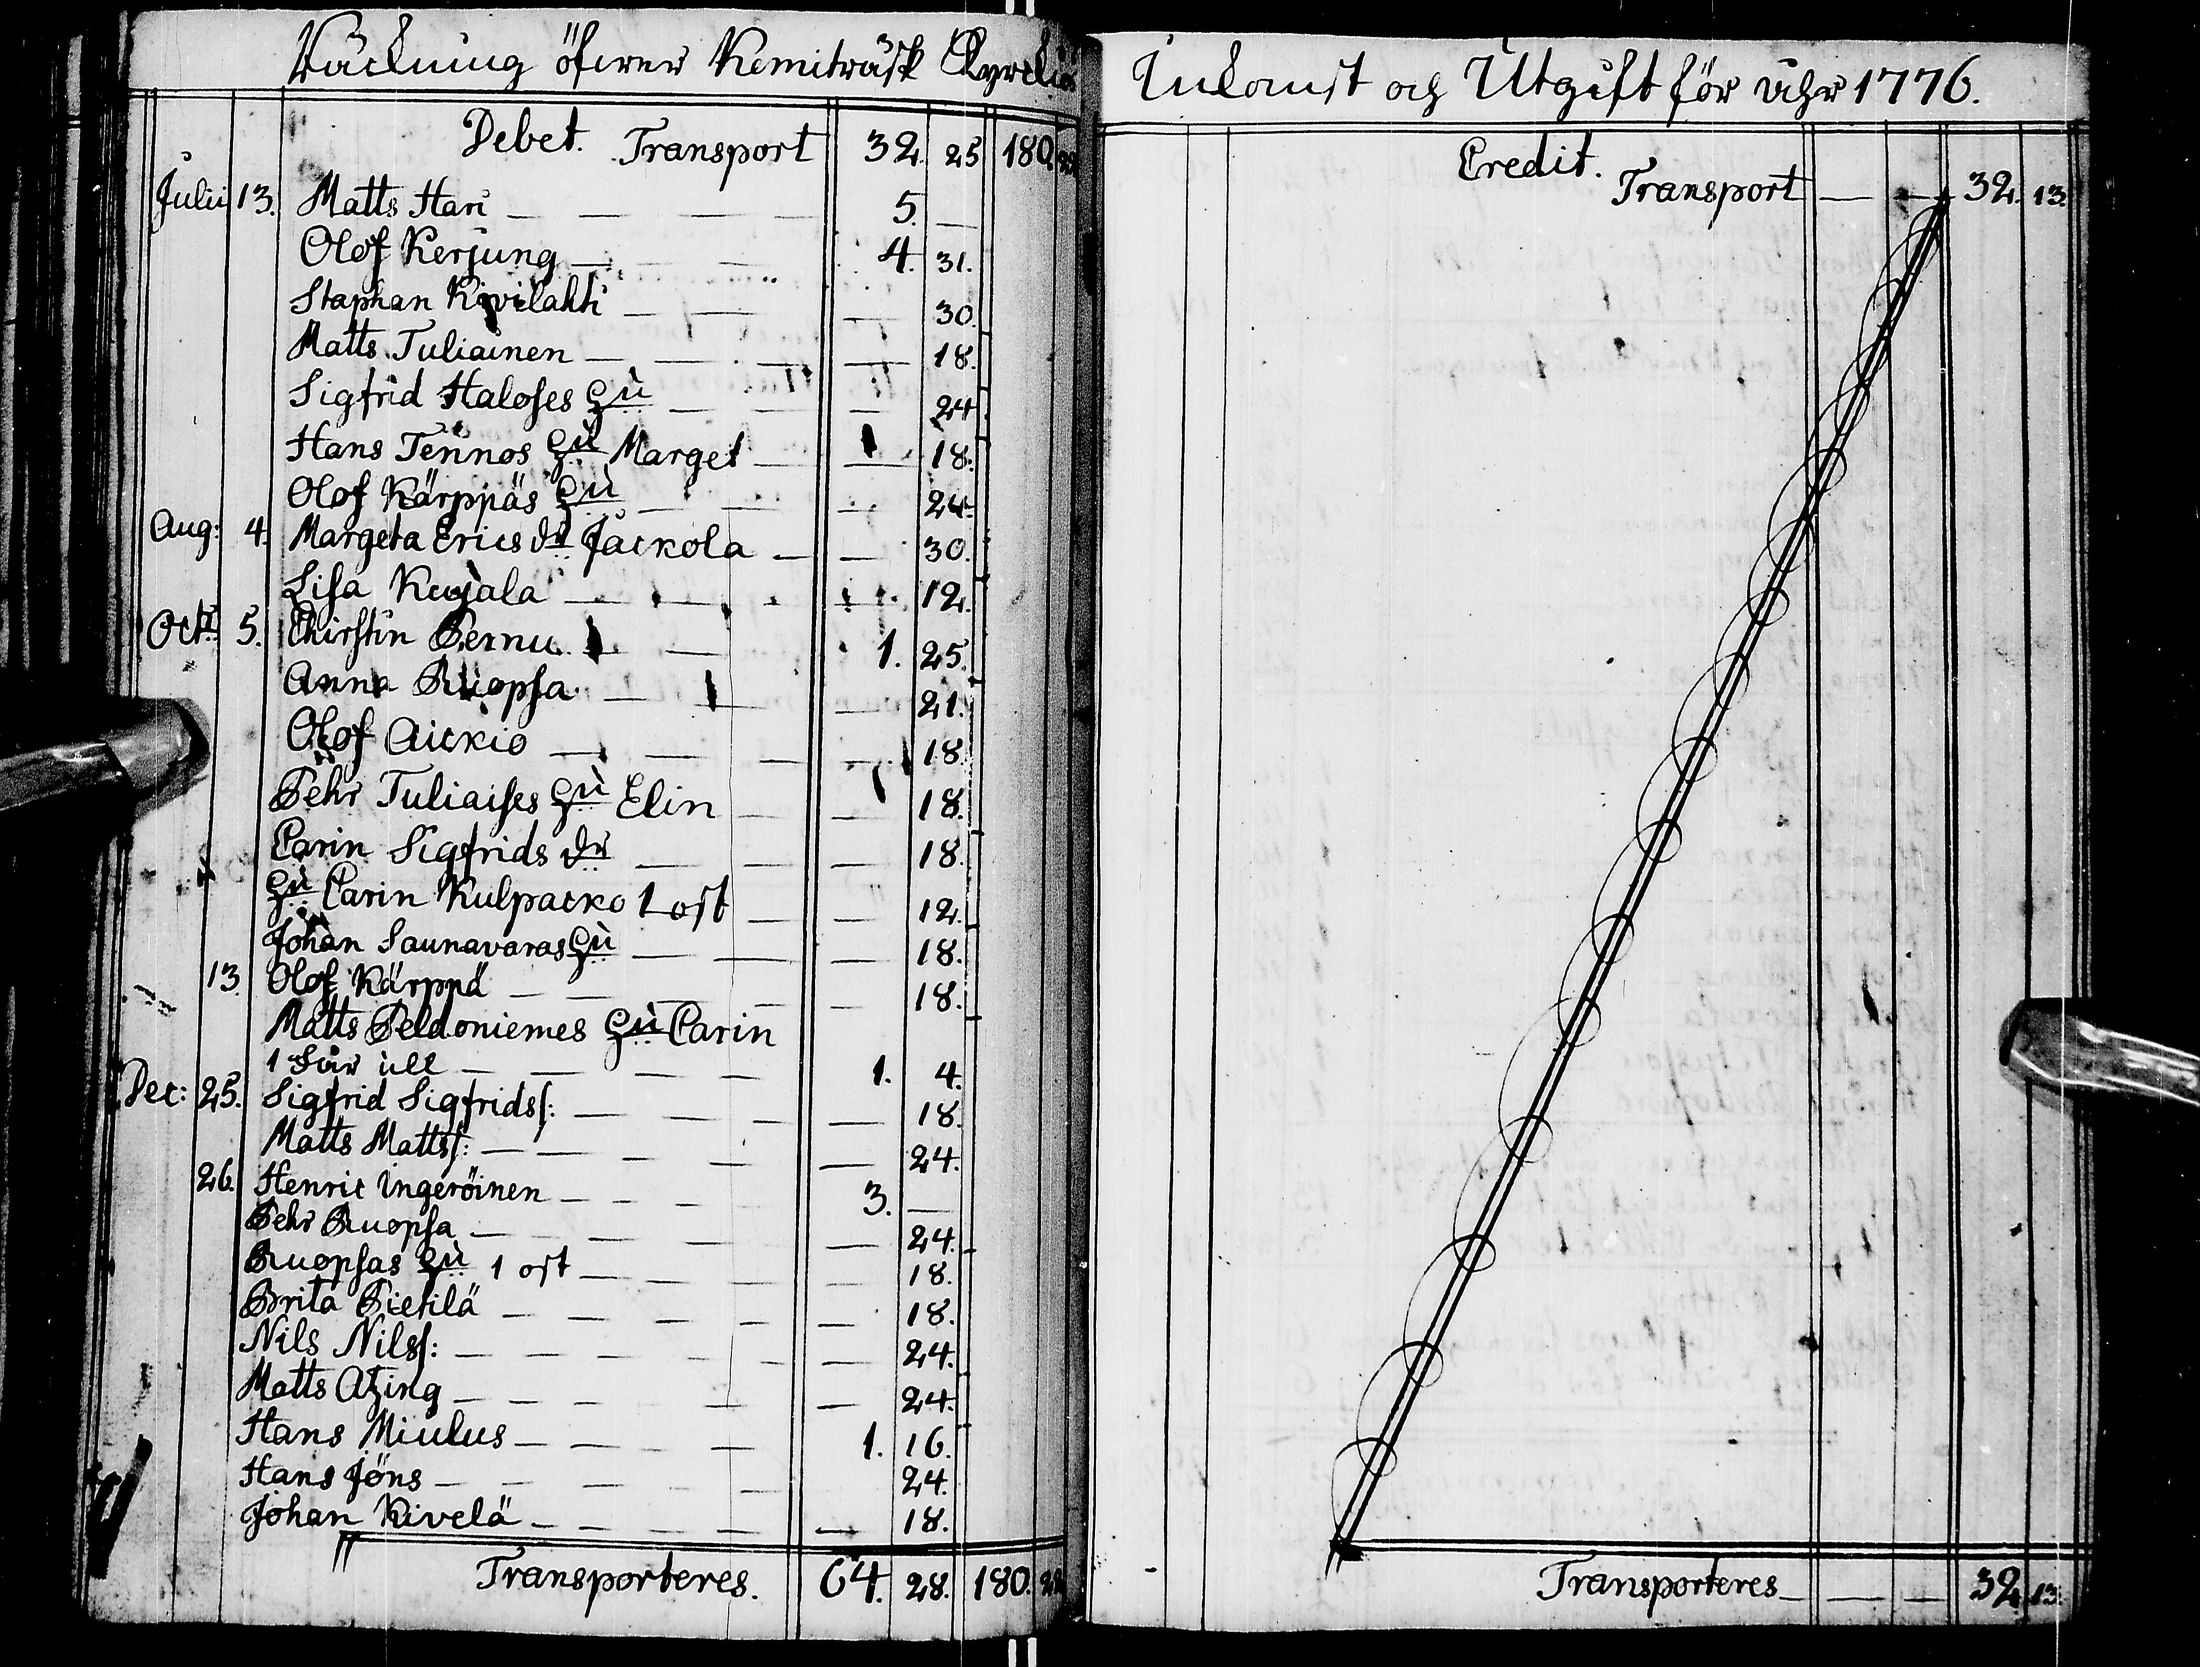 Räckning öfwer Kemiträsk Kyrckios
Debet. Transport 32. 25 180. 22
Julii 13. Matts Hari — — — — 5. —
Olof Kerjung — — — 4. 31.
Staphan Kivilahti — — — 30.
Matts Tuliainen — — — — 18.
Sigfrid Haloses hu — — — 24
Hans Tennos hu Marget — — 18.
Olof Kärppäs hu — — — 24.
Aug: 4. Margeta Erics dr Jackola — — 30.
Lisa Kujala — — — — 12.
Octr 5. Chirstin Pernu — — 1. 25.
Anna Ruopsa — — — 21.
Olof Aickio — — — — 18.
Pehr Tuliaises hu Elin — — 18.
Carin Sigfrids dr — — — 18.
hu Carin Kulpacko 1 ost — — 12.
Johan Saunavaras hu — — — 18.
13. Olof Kärppä — — — — 18.
Matts Peldoniemes hu Carin
1 får ull — — — — 1. 4.
Dec: 25. Sigfrid Sigfridss: — — — — 18.
Matts Mattss: — — — — — 24.
26. Henric Ingeröinen — — — 3. —
Pehr Ruopsa — — — — — 24.
Ruopsas hu 1 ost — — — — 18.
Brita Pietilä — — — — — 18.
Nils Nilss: — — — — — 24.
Matts Atzing — — — — — 24.
Hans Miulus — — — — 1. 16.
Hans Jöns — — — — — 24.
Johan Kivelä — — — — — 18.
Transporteres. 64. 28. 180. 22
Inkomst och Utgift för åhr 1776.
Credit.
Transport — — 32. 13.
Transporteres — — — 32. 13.